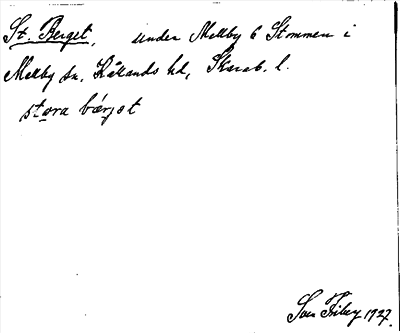 St. Berget, under Mellby 6 Stommen i
Mellby sn. Kållands hd, Skarab. l.
stora bærjet
Sven Friberg 1927.